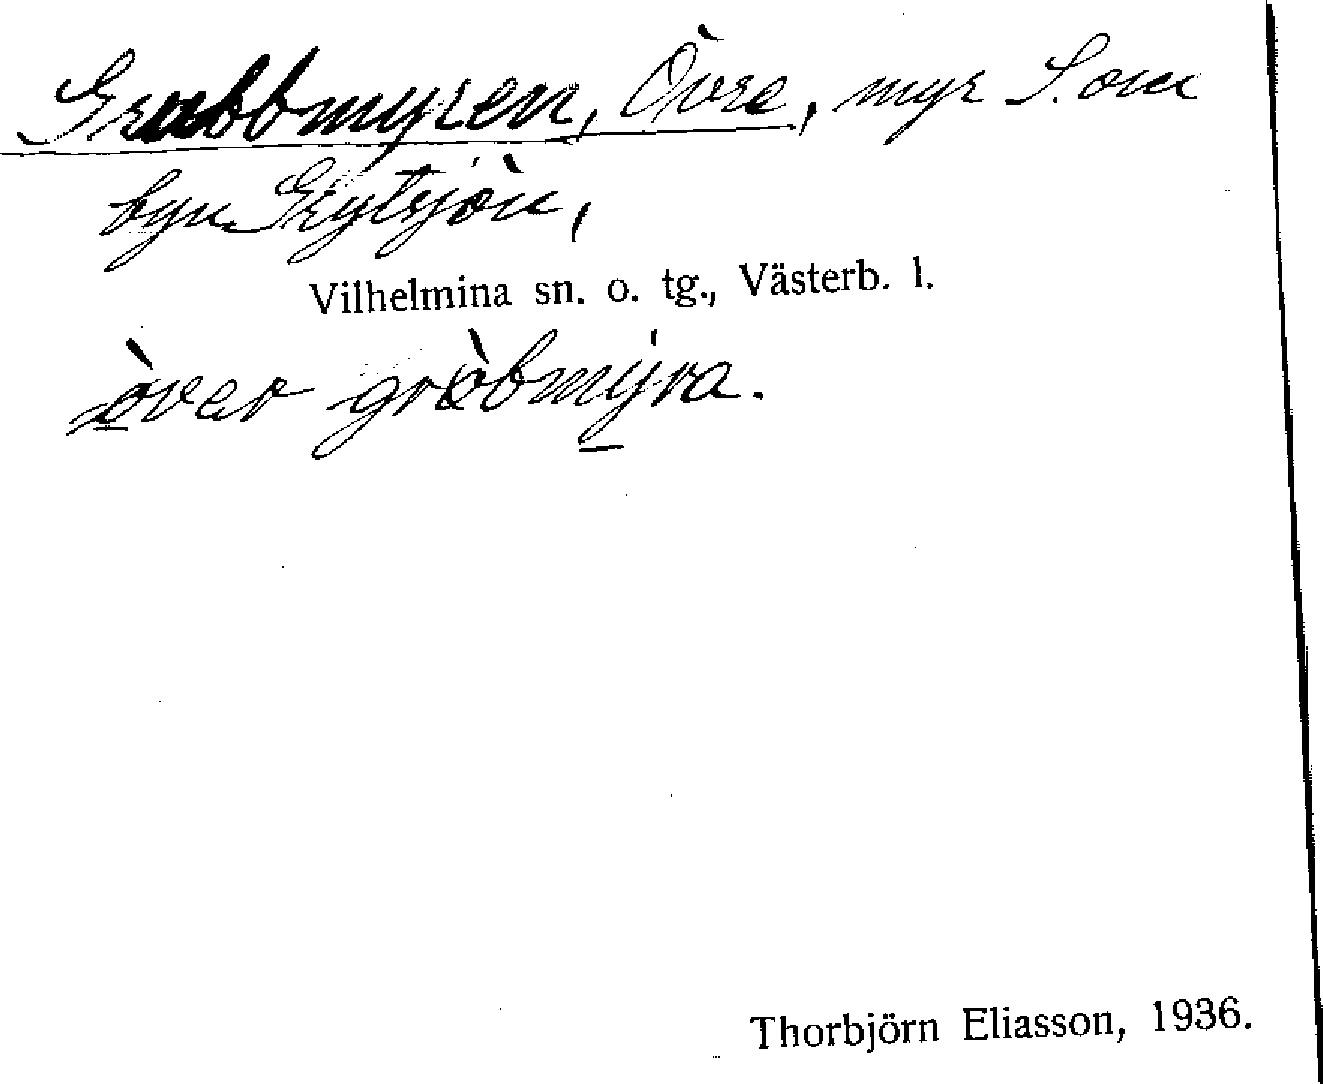 Grubbmyren, Övre, myr S. om
byn Grytsjön,
Vilhelmina sn. o. tg., Västerb. l.
Thorbjörn Eliasson, 1936.